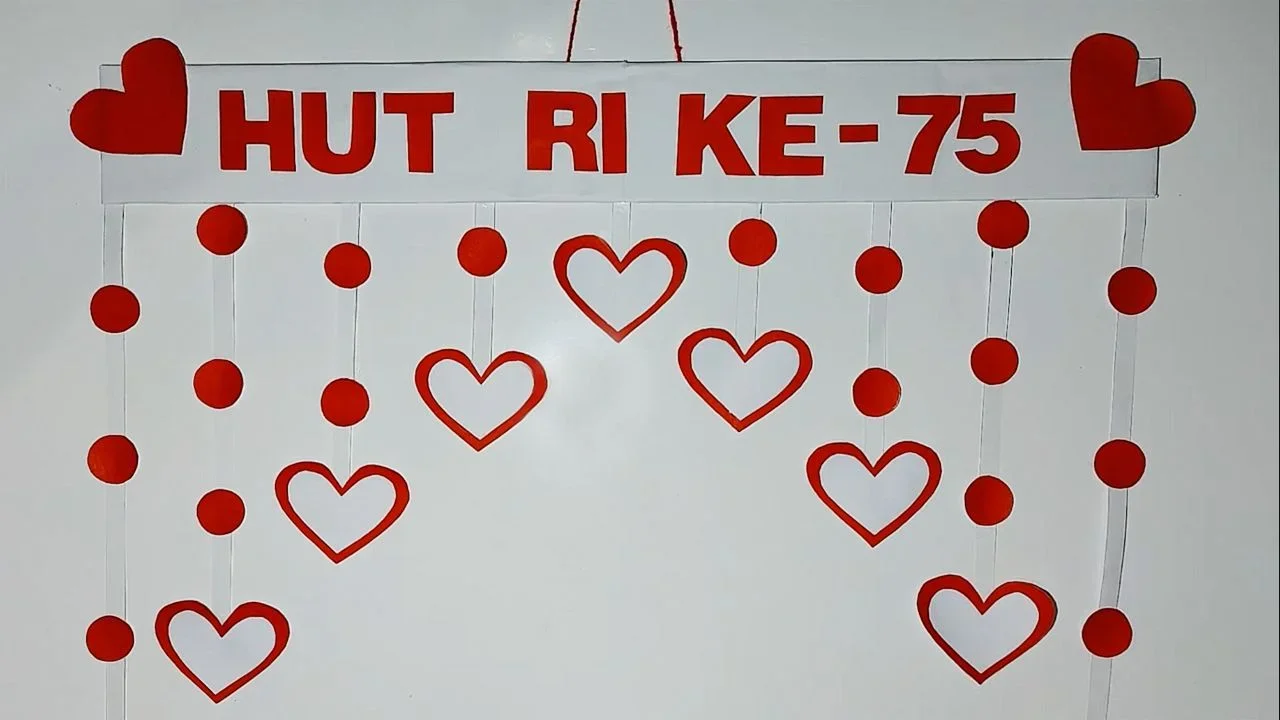 HUT RI KE-75